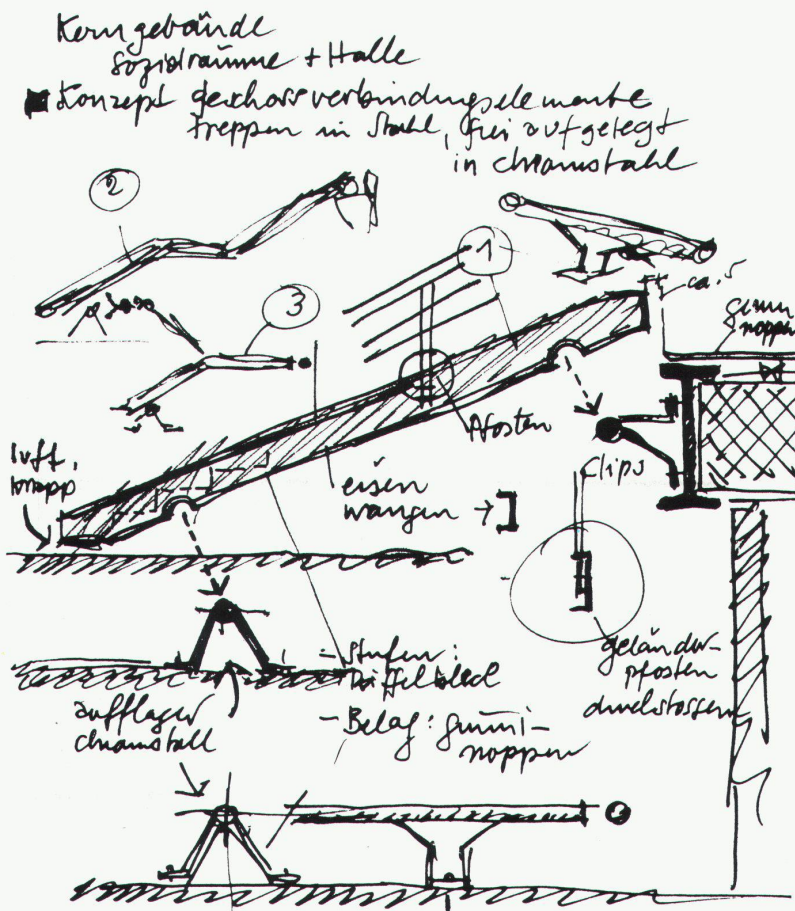 Kerngebäude
Sozialräume + Halle
Konzept geschossverbindungselemente
Treppen in Stahl, frei aufgelegt
in chromstahl
2
1
ca. 5
gummi
noppen
3
Pfosten
luft,
knapp
eisen
wangen →
Clips
- Stufen:
Riffelblech
- Belag: gummi-
noppen
geländer-
pfosten
durchstossen
aufflager
chromstahl